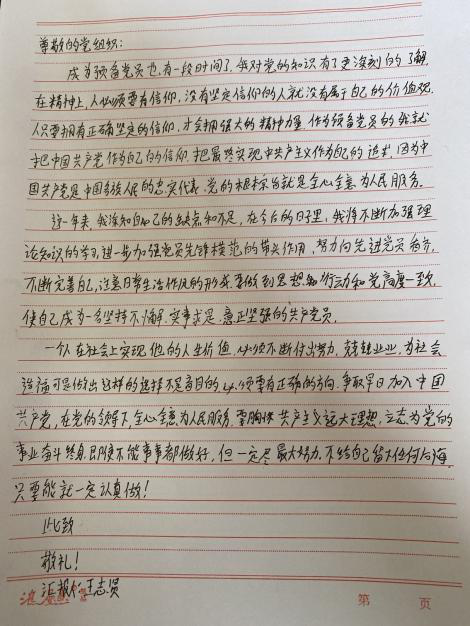 尊敬的党组织：
成为预备党员也有一段时间了，我对党的知识有了更深刻的了解.
在精神上，人必须要有信仰，没有坚定信仰的人就没有属于自己的价值观.
人只要拥有正确坚定的信仰，才会拥强大的精神力量.作为预备党员的我就
把中国共产党作为自己的信仰，把最终实现中共产主义作为自己的追求，因为中
国共产党是中国各族人民的忠实代表，党的根本宗旨就是全心全意为人民服务.
这一年来，我深知自己的缺点和不足，在今后的日子里，我将不断加强理
论知识的学习，进一步加强党员先锋模范的带头作用，努力向先进党员看齐
不断完善自己，注意日常生活作风的形成，要做到思想和行动和党高度一致.
使自己成为一名坚持不懈.实事求是.意正坚强的共产党员.
一个人在社会上实现他的人生价值，必须不断付出努力，兢兢业业，为社会
造福可是做出这样的选择不是盲目的，必须要有正确的方向.争取早日加入中国
共产党，在党的领导下全心全意为人民服务.要胸怀共产主义远大理想，立志为党的
事业奋斗终身，即使不能事事都做好，但一定尽最大努力，不给自己留下任何后悔
只要能就一定认真做！
此致
敬礼！
汇报人：王志
第 页